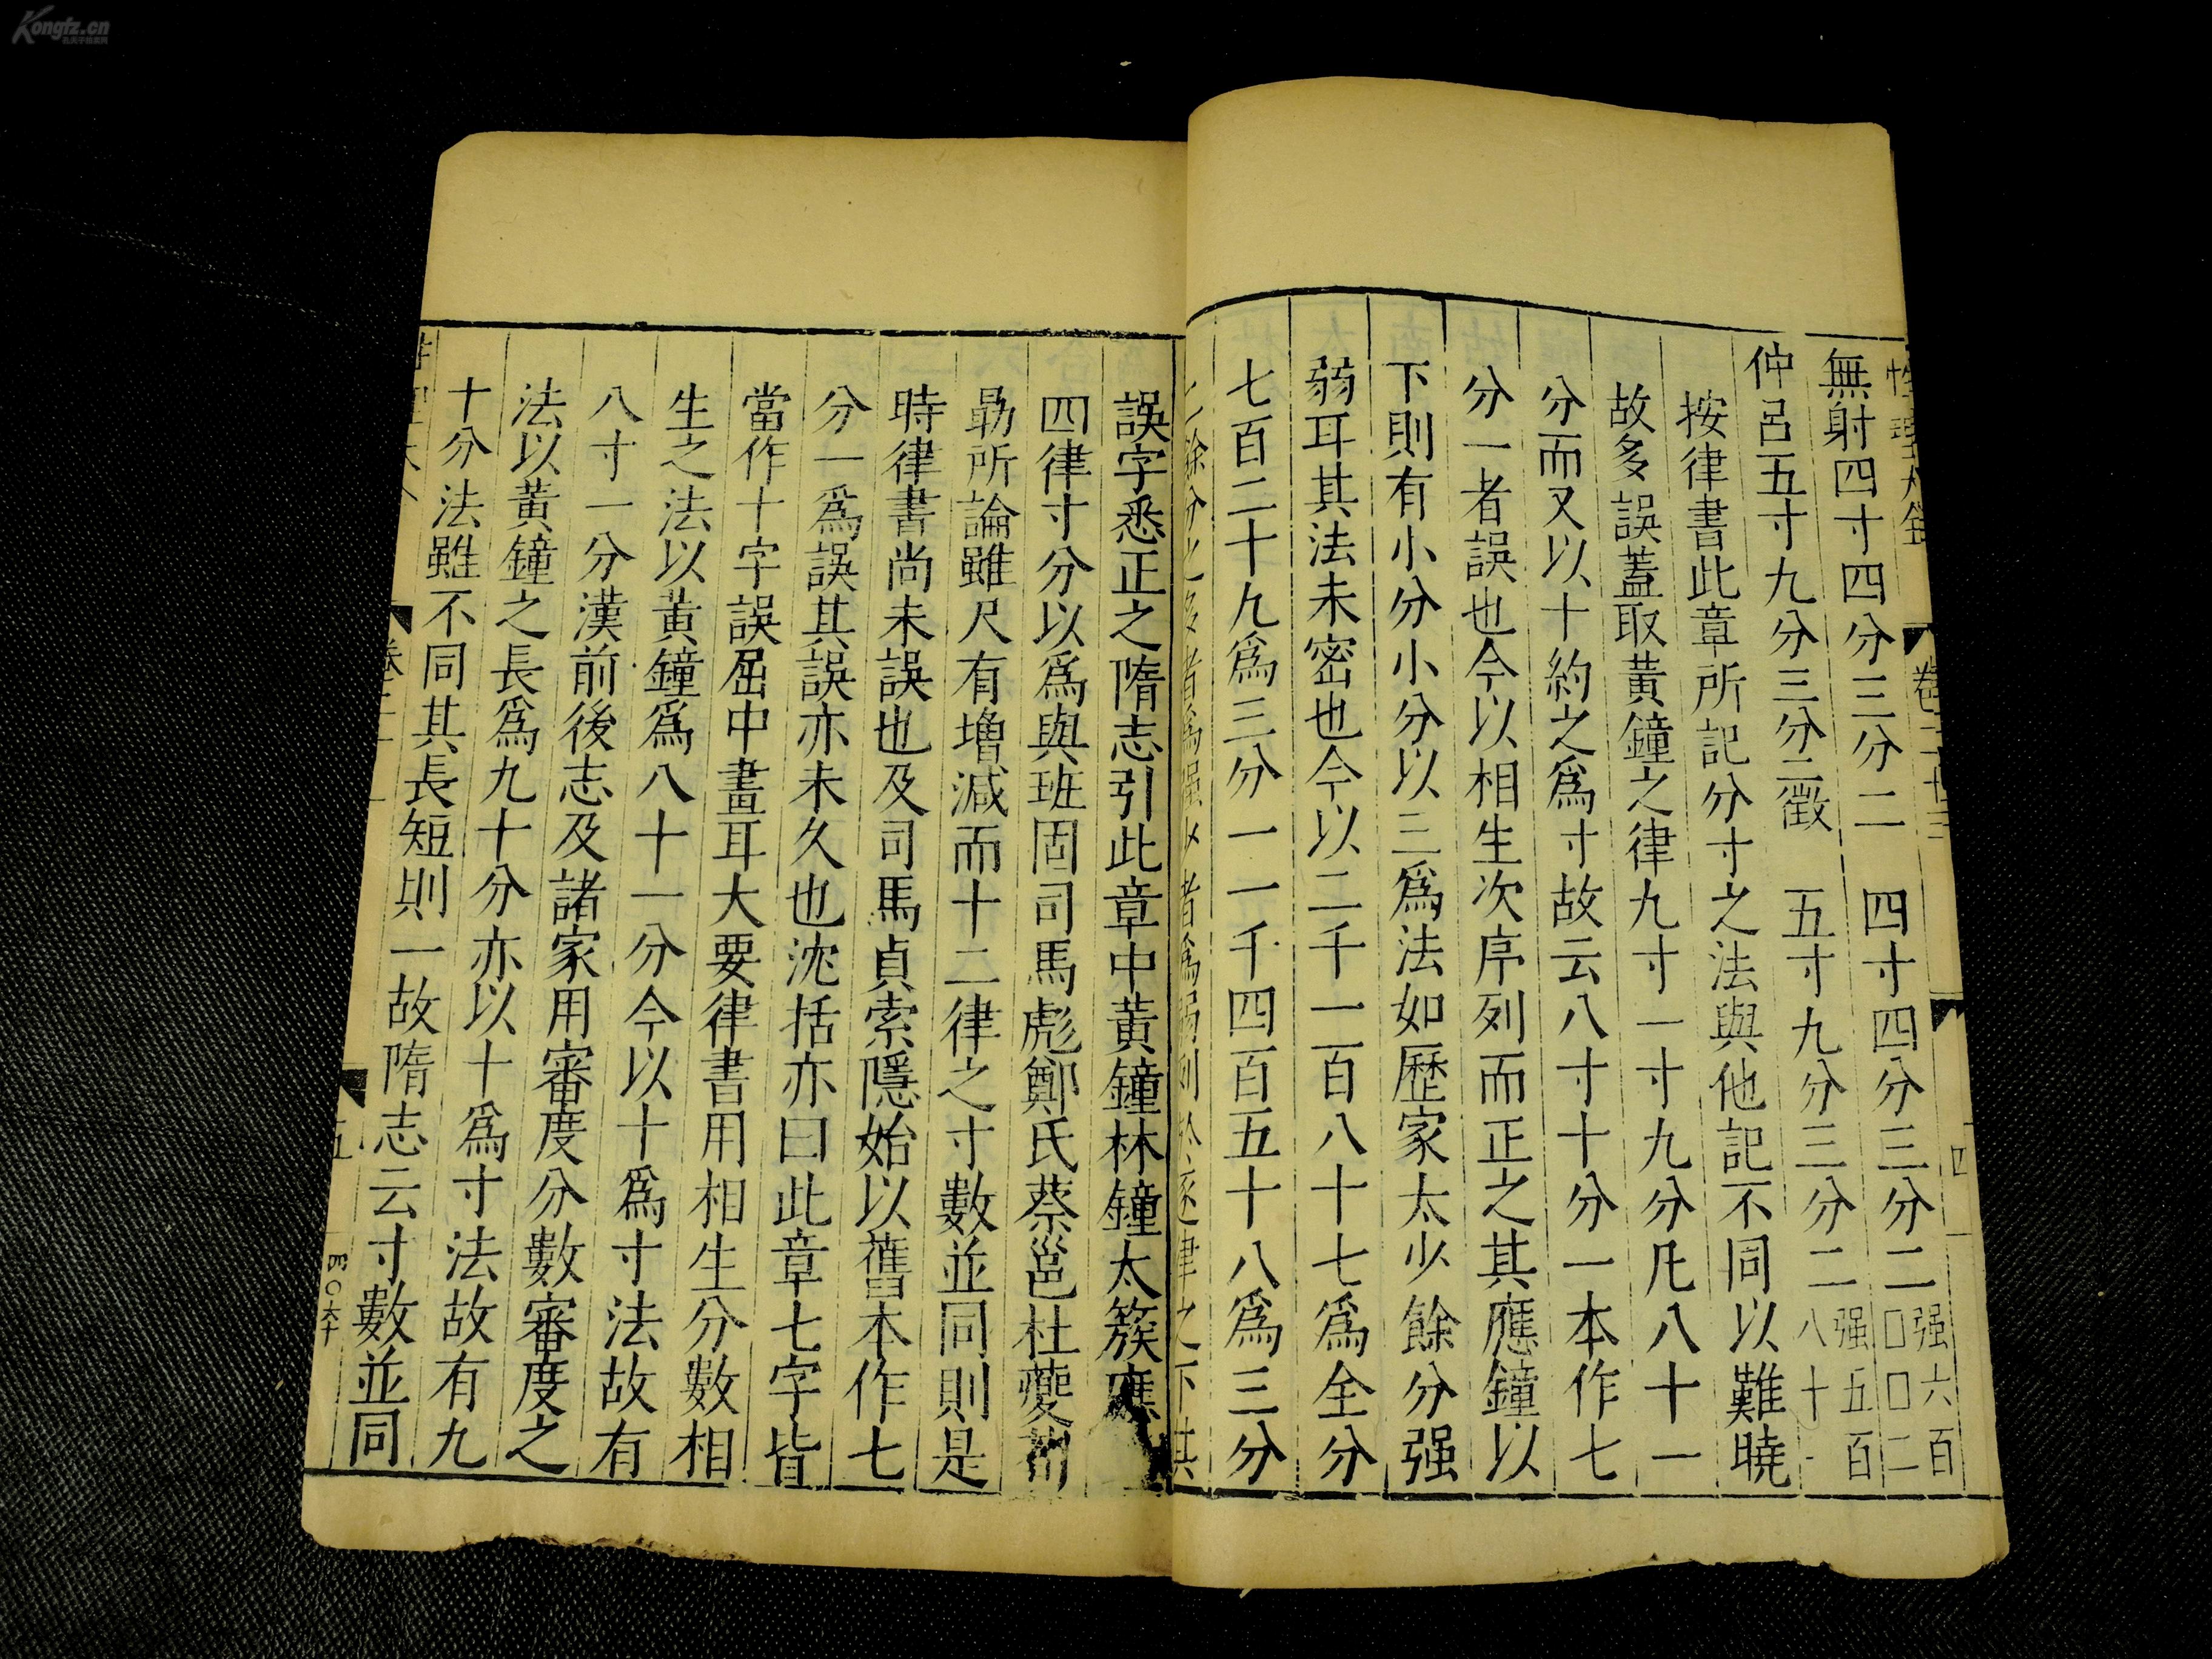 Kongfz.cn
性理大全
卷二十三
四
無射四寸四分三分二 四寸四分三分二 强六百□□二
仲呂五寸九分三分二徵 五寸九分三分二 强五百八十一
按律書此章所記分寸之法與他記不同以難曉
故多誤蓋取黃鐘之律九寸一寸九分凡八十一
分而又以十約之爲寸故云八寸十分一本作七
分一者誤也今以相生次序列而正之其應鐘以
下則有小分小分以三爲法如歷家太少餘分强
弱耳其法未密也今以二千一百八十七爲全分
七百二十九爲三分一一千四百五十八爲三分
餘分之多者爲强少者爲弱列於逐律之下其
誤字悉正之隋志引此章中黃鐘林鐘太簇應
四律寸分以爲與班固司馬彪鄭氏蔡邕杜夔荀
勗所論雖尺有增減而十二律之寸數並同則是
時律書尚未誤也及司馬貞索隱始以舊本作七
分一爲誤其誤亦未久也沈括亦曰此章七字皆
當作十字誤屈中畫耳大要律書用相生分數相
生之法以黃鐘爲八十一分今以十爲寸法故有
八寸一分漢前後志及諸家用審度分數審度之
法以黃鐘之長爲九十分亦以十爲寸法故有九
十分法雖不同其長短則一故隋志云寸數並同
五